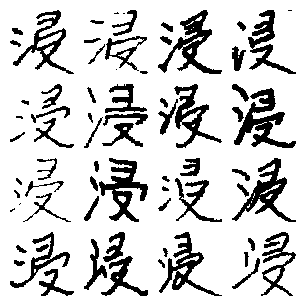 浸浸浸浸
浸浸浸浸
浸浸浸浸
浸浸浸浸